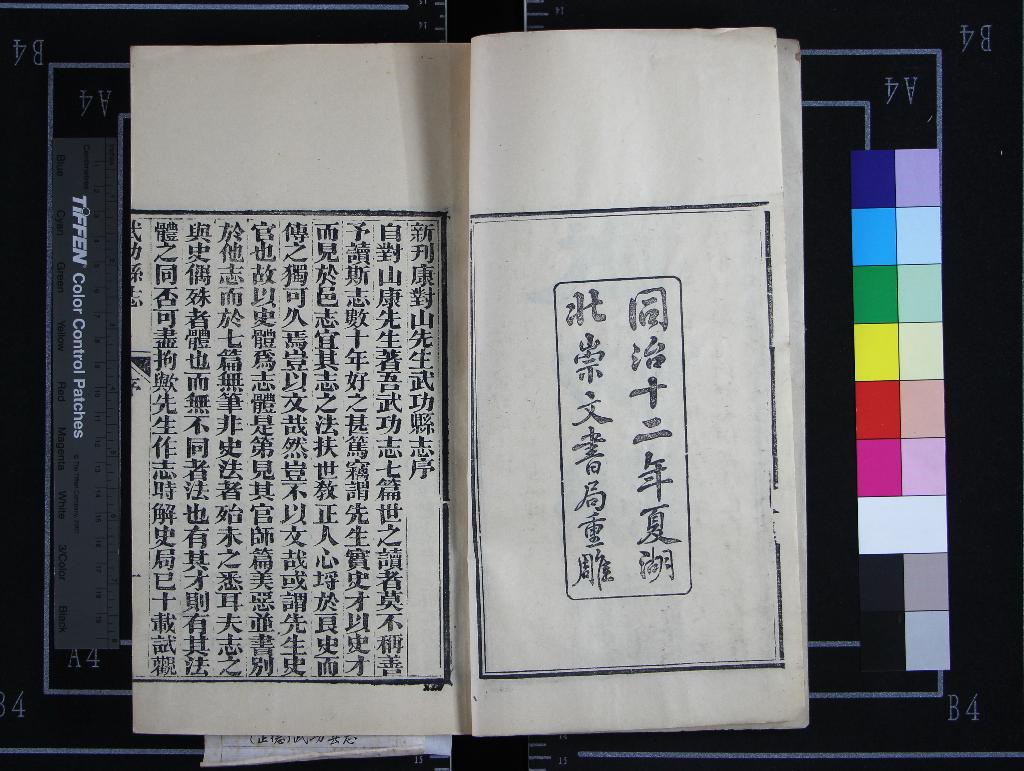 同治十二年夏湖
北崇文書局重雕
新刋康對山先生武功縣志序
自對山康先生著吾武功志七篇世之讀者莫不稱善
予讀斯志數十年好之甚篤竊謂先生實史才以史才
而見於邑志宜其志之法扶世敎正人心埒於良史而
傳之獨可久焉豈以文哉然豈不以文哉或謂先生史
官也故以史體爲志體是第見其官師篇美惡並書別
於他志而於七篇無筆非史法者殆未之悉耳夫志之
與史偶殊者體也而無不同者法也有其才則有其法
體之同否可盡拘歟先生作志時解史局已十載試觀
武功縣志
序
一
TIFFEN Color Control Patches
Blue
Cyan
Green
Yellow
Red
Magenta
White
3/Color
Black
Centimetres
B4
A4
B4
A4
A4
B4
B4
(正德)武功县志